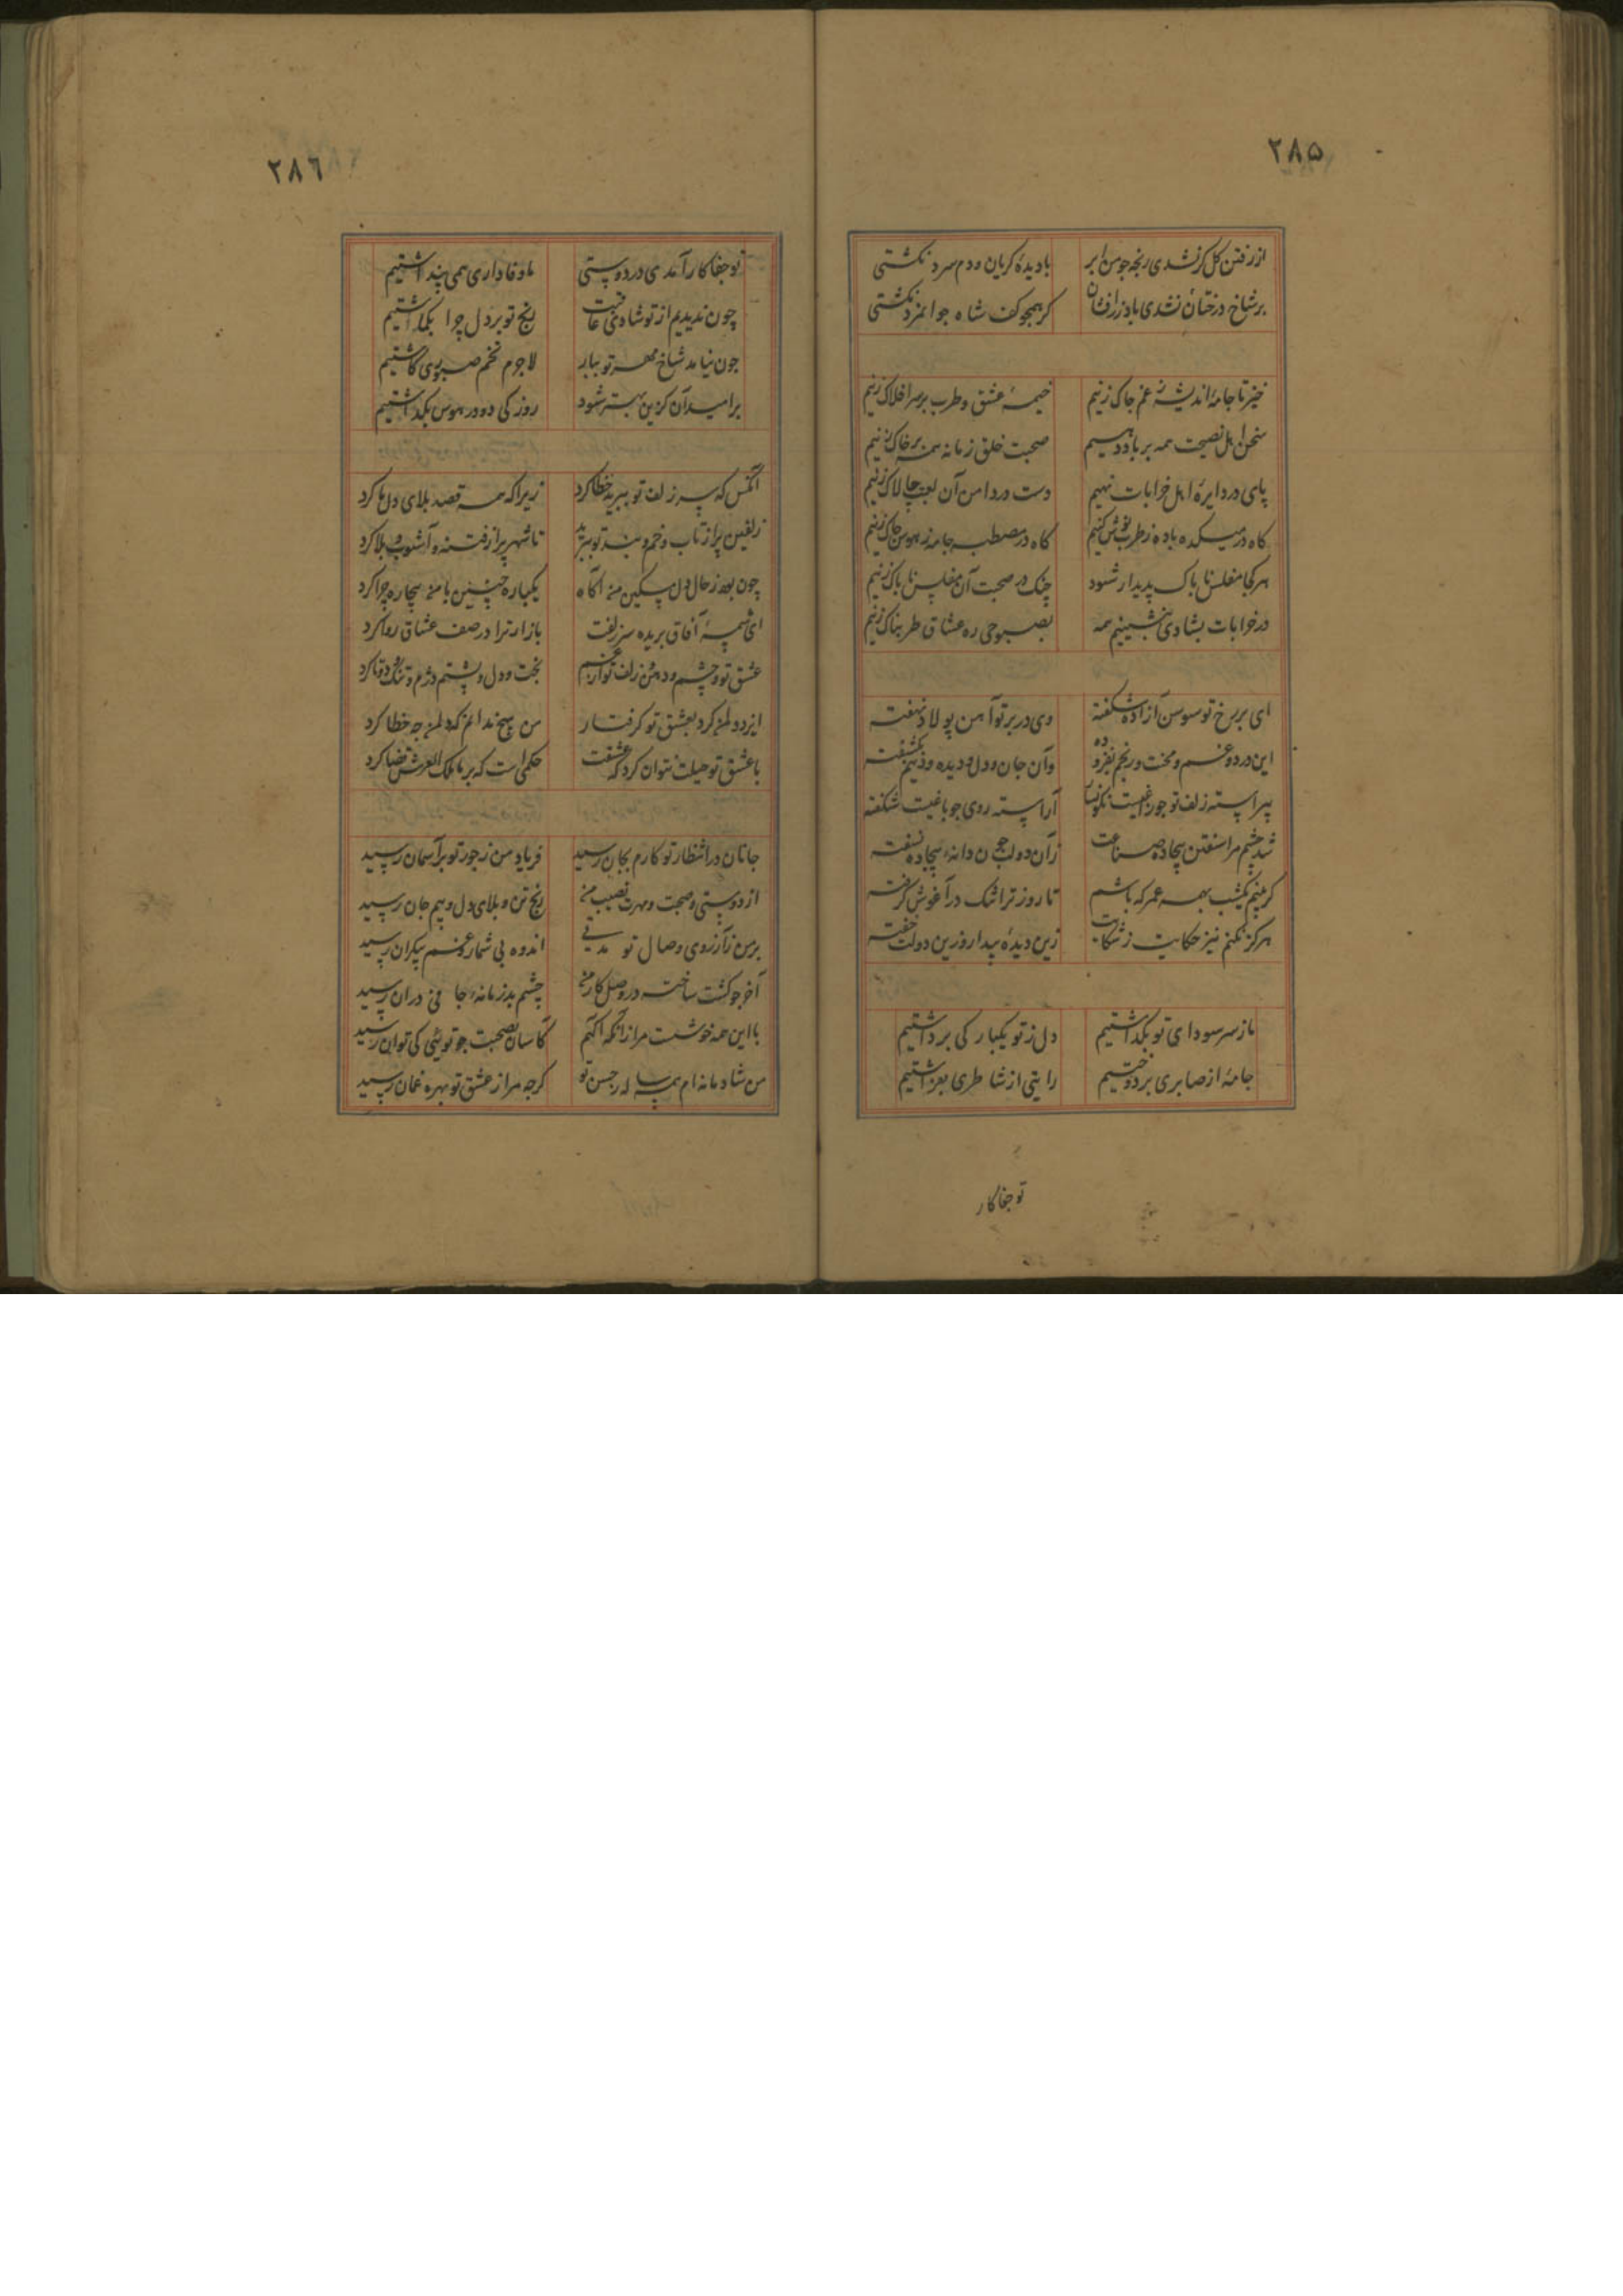 ٢٨۵
از رفتن گل گر نشدی رنجه جو من ابر
با دیدهٔ کریان و دم سرد نکشتی
بر شاخ درختان نشدی باد زرافشان
کر همجو کف شاه جوانمرد نکشتی
خیز تا جامهٔ اندیشهٔ غم جاک زنیم
خیمهٔ عشق و طرب بر سر افلاک زنیم
سخن اهل نصیحت همه بر باد دهیم
صحبت خلق زمانه همه بر خاک زنیم
پای در دایرهٔ اهل خرابات نهیم
دست در دامن آن لعبت جالاک زنیم
کاه در میکده باده ز طرب نوش کنیم
کاه در مصطبه جامه ز هوس جاک زنیم
هر کجا مفلس ناباک پدیدار شود
چنک در صحبت آن مفلس ناباک زنیم
در خرابات بشادی بنشینیم همه
بصبوحی ره عشاق طربناک زنیم
ای بر رخ تو سوسن آزاده شکفته
وی در بر تو آهن پولاد نهفته
این درد و غم و محنت و رنجم بفزوده
وآن جان و دل و دیده و دینم بکشفته
پیراسته زلف تو جو زاغیست نکونسار
آراسته روی جو باغیست شکفته
شد چشم مرا سفتن بیجاده صناعت
زان دو لب جون دانهٔ بیجاده نسفته
کر بینم یکشب بهمه عمر که باشم
تا روز ترا تنک در آغوش کرفته
هرکز نکنم نیز حکایت ز شکایت
زین دیدهٔ بیدار وزین دولت خفته
ما ز سر سودای تو بکذاشتیم
دل ز تو یکبارکی برداشتیم
جامهٔ از صابری بردوختیم
رایتی از شاطری بفراشتیم
تو جفاکار
٢٨٦
تو جفاکار آمدی در دوستی
ما وفاداری همی پنداشتیم
چون ندیدیم از تو شادی عاقبت
رنج تو بر دل چرا بکماشتیم
جون نیامد شاخ مهر تو ببار
لاجرم تخم صبوری کاشتیم
بر امید آن کزین بهتر شود
روزکی دو در هوس بکذاشتیم
آنکس که سر زلف تو ببرید خطا کرد
زیرا که همه قصد بلای دل ما کرد
زلفین پر از تاب و خم و بند تو ببرید
تا شهر پر از فتنه و آشوب و بلا کرد
چون بود ز حال دل مسکین من آکاه
یکباره چنین با من بیچاره چرا کرد
ای شمسهٔ آفاق بریده سر زلفت
بازار ترا در صف عشاق روا کرد
عشق تو و چشم و دهن و زلف تو از غم
بخت و دل و پشتم دژم و تنک و دوتا کرد
ایزد دلم کرد بعشق تو کرفتار
من هیچ ندانم که دلم جه خطا کرد
با عشق تو حیلت نتوان کرد که عشقت
حکمی است که بر ما ملک العرش قضا کرد
جانان در انتظار تو کارم بجان رسید
فریاد من ز جور تو بر آسمان رسید
از دوستی و صحبت و مهرت نصیب من
رنج تن و بلای دل و بیم جان رسید
بر من ز آرزوی وصال تو مدتی
اندوه بی شمار و غم بیکران رسید
آخر جو کشت ساخته در وصل کار من
چشم بد زمانهٔ جافی در آن رسید
با این همه خوشست مرا زانکه آکهم
کاسان بصحبت جو تویی کی توان رسید
من شادمانه ام همه ساله ز حسن تو
کرجه مرا ز عشق تو بهره غمان رسید